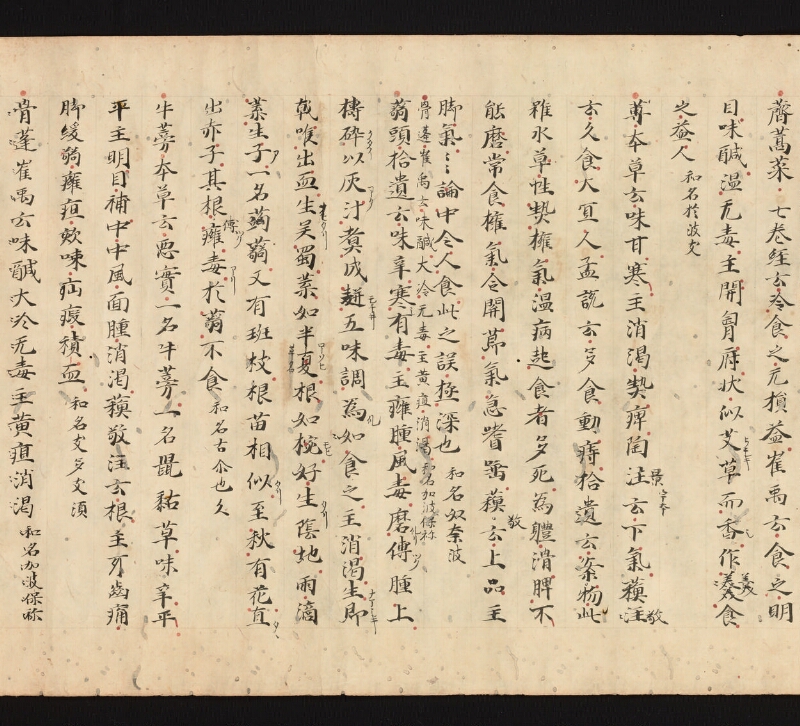 薺蒿菜七巻経云冷食之无損益崔禹云食之明
目味醎温无毒主開胃府状似艾草而香作羹食
之益人 和名於波支
蓴本草云味甘寒主消渇熱痺陶注云下氣蘓敬注
云久食大冝人孟詵云多食動痔拾遺云案物此
雖水草性熱擁氣温病起食者多死為體滑脾不
能磨常食擁氣令開節氣急嗜蘓敬云上品主
脚氣〻論中令人食此之誤極深也 和名奴奈波
骨蓬崔禹云味醎大冷无毒主黄疸消渇 和名加波保祢
蒟頭拾遺云味辛寒有毒主癰腫風毒磨傅腫上
擣碎以灰汁煮成餅五味調為如食之主消渇生即
戟喉出血生吴蜀葉如半夏根如椀好生陰地雨滴
葉生子一名蒟蒻又有斑杖根苗相似至秋有花直
出赤子其根傅癰毒於蒟不食 和名古介也久
牛蒡本草云悪實一名牛蒡一名䶈黏草味辛平
平主明目補中中風面腫消渇蘓敬注云根主牙齒痛
脚緩弱癰疽欬嗽疝瘕積血 和名支多支須
骨蓬崔禹云味醎大冷无毒主黄疸消渇 和名加波保祢